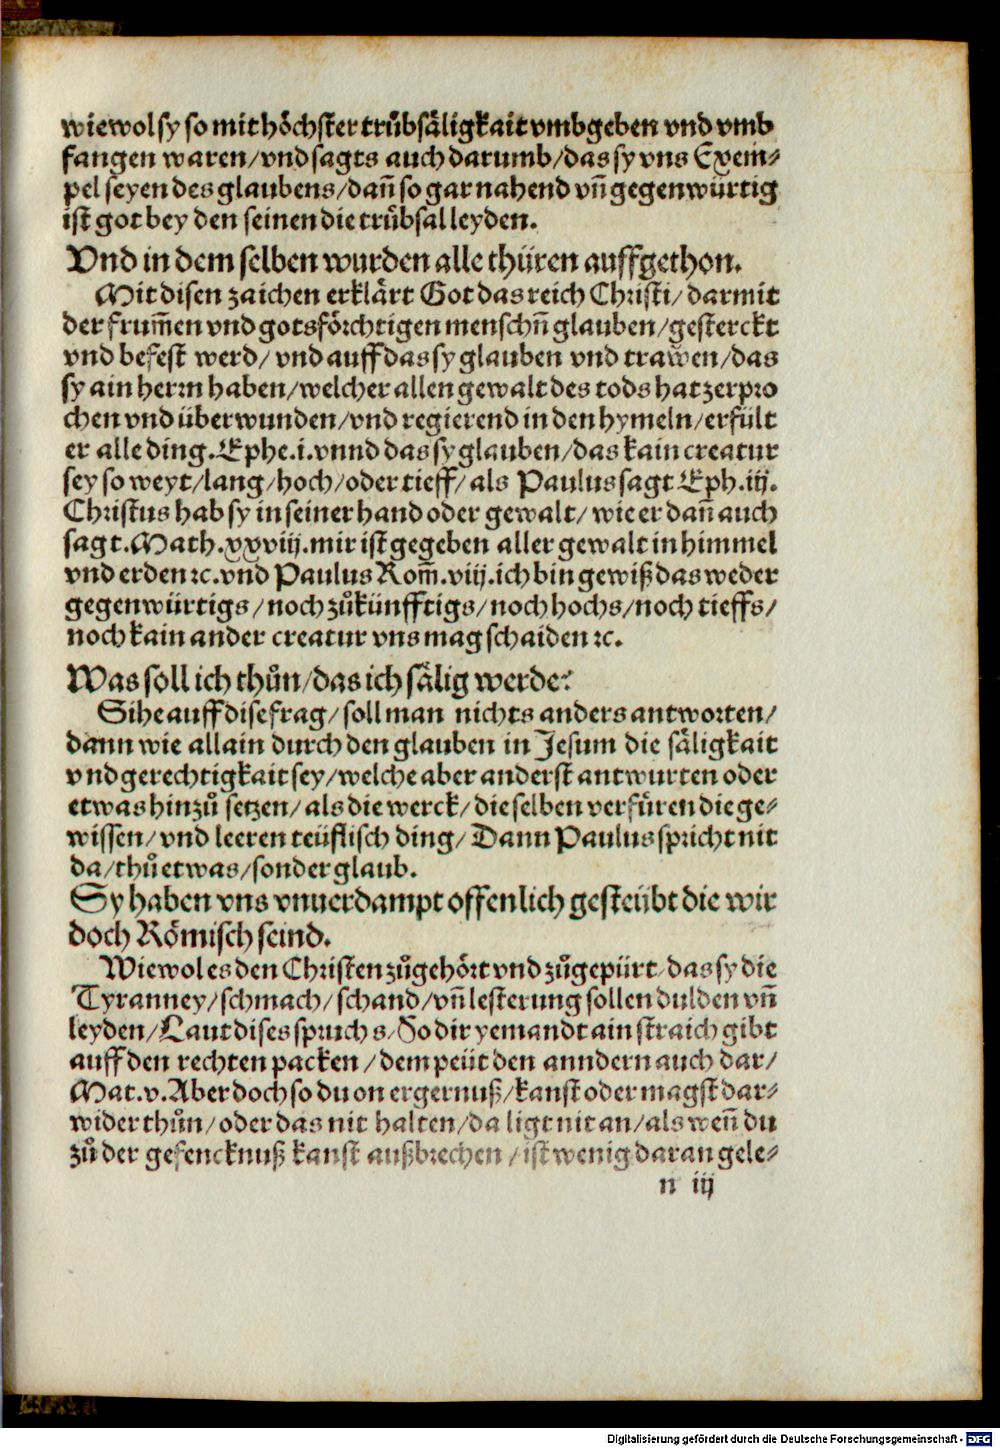 wiewol sy so mit hőchster trůbsäligkait vmbgeben vnd vmb
fangen waren/ vnd sagts auch darumb/ das sy vns Exem⸗
pel seyen des glaubens/ dañ so gar nahend vñ gegenwürtig
ist got bey den seinen die trůbsal leyden.
Vnd in dem selben wurden alle thüren auffgethon.
Mit disen zaichen erklärt Got das reich Christi/ darmit
der frum̃en vnd gotsförchtigen menschñ glauben/ gesterckt
vnd befest werd/ vnd auff das sy glauben vnd trawen/ das
sy ain herrn haben/ welcher allen gewalt des tods hat zerpro
chen vnd überwunden/ vnd regierend in den hymeln/ erfült
er alle ding. Ephe. i. vnnd das sy glauben/ das kain creatur
sey so weyt/ lang/ hoch/ oder tieff/ als Paulus sagt Eph. iij.
Christus hab sy in seiner hand oder gewalt/ wie er dañ auch
sagt. Math. xxviij. mir ist gegeben aller gewalt in himmel
vnd erden ꝛc. vnd Paulus Rom̃. viij. ich bin gewiß das weder
gegenwürtigs/ noch zůkünfftigs/ noch hochs/ noch tieffs/
noch kain ander creatur vns mag schaiden ꝛc.
Was soll ich thůn/ das ich sälig werde?
Sihe auff dise frag/ soll man nichts anders antworten/
dann wie allain durch den glauben in Jesum die säligkait
vnd gerechtigkait sey/ welche aber anderst antwurten oder
etwas hinzů setzen/ als die werck/ die selben verfüren die ge⸗
wissen/ vnd leeren teüflisch ding/ Dann Paulus spricht nit
da/ thů etwas/ sonder glaub.
Sy haben vns vnuerdampt offenlich gesteübt die wir
doch Römisch seind.
Wiewol es den Christen zůgehört vnd zůgepürt/ das sy die
Tyranney/ schmach/ schand/ vñ lesterung sollen dulden vñ
leyden/ Laut dises spruchs/ So dir yemandt ain straich gibt
auff den rechten packen/ dem peüt den anndern auch dar/
Mat. v. Aber doch so du on ergernuß/ kanst oder magst dar⸗
wider thůn/ oder das nit halten/ da ligt nit an/ als weñ du
zů der gefencknuß kanst außbrechen/ ist wenig daran gele⸗
n iij
Digitalisierung gefördert durch die Deutsche Forschungsgemeinschaft - DFG